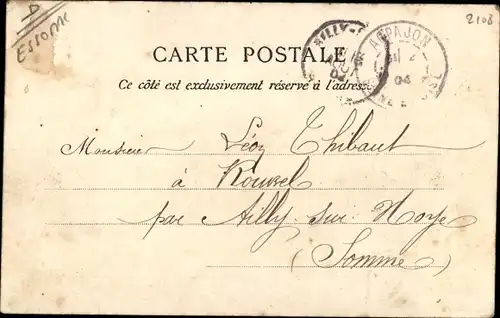 D
Essonne
2108
AILLY-S
04
ARPAJON
04
SEINE ET OISE
CARTE POSTALE
Ce côté est exclusivement réservé à l'adresse
Monsieur Léon Thibaut
à Rouvrel
par Ailly-sur-Noye
(Somme)